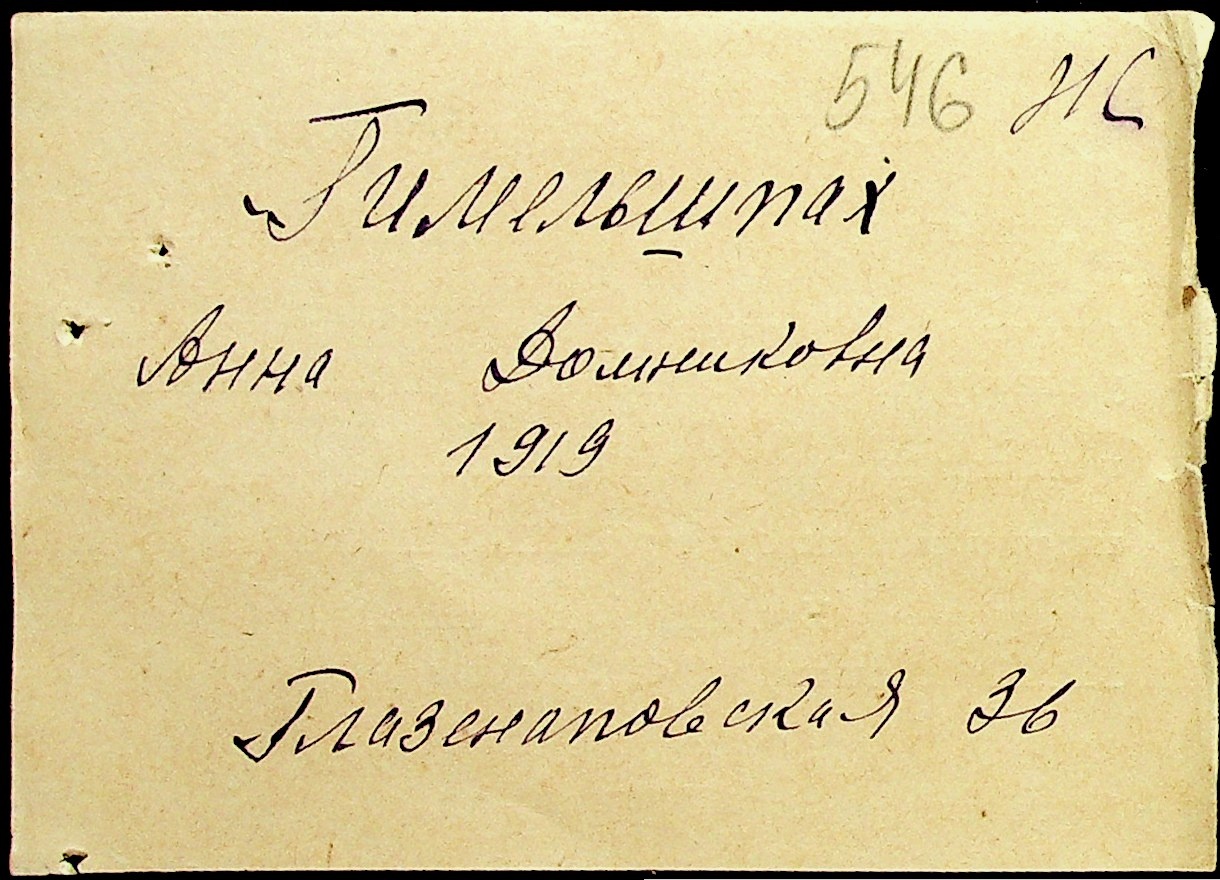 546 НС
Гимельшпах
Анна Доминиковна
1919
Глазенаповская 36